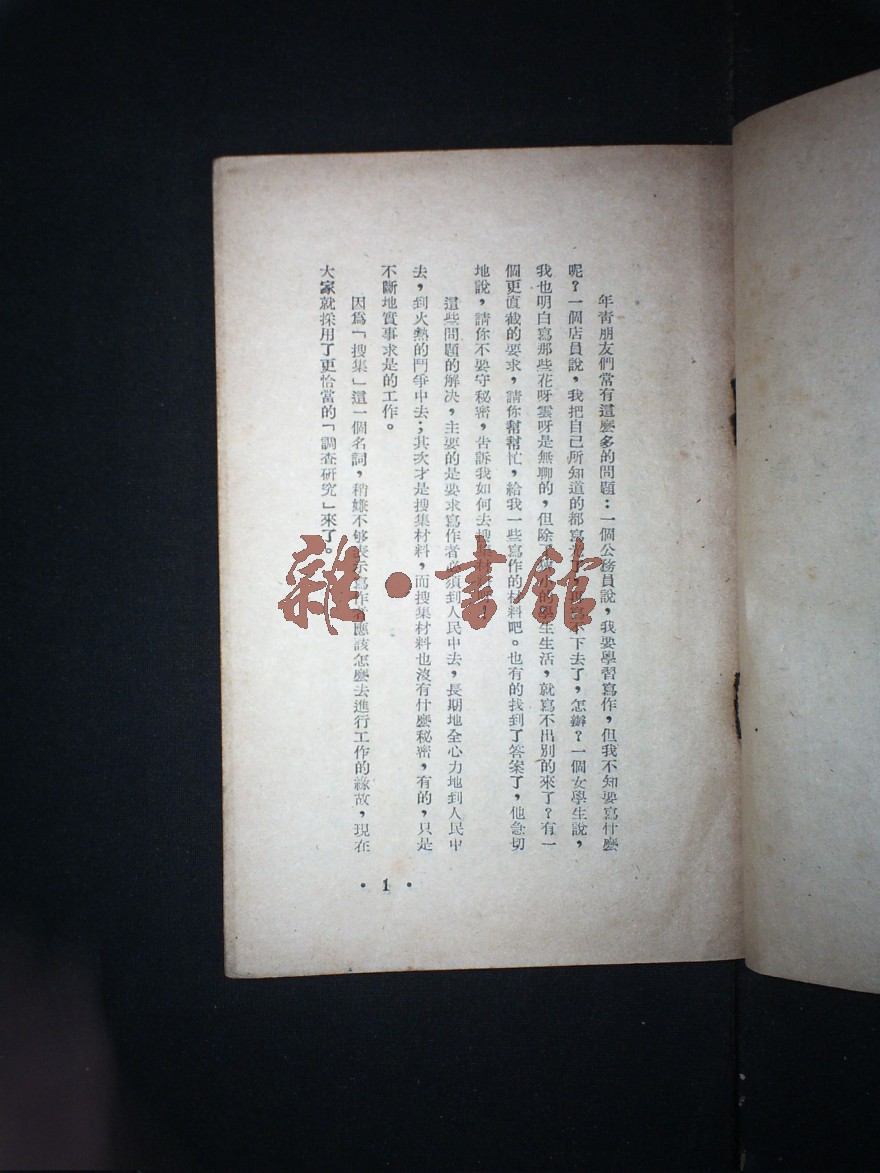 年青朋友們常有這麽多的問題：一個公務員說，我要學習寫作，但我不知要寫什麽
呢？一個店員說，我把自己所知道的都寫下去了，怎辦？一個女學生說，
我也明白寫那些花呀雲呀是無聊的，但除了的學生生活，就寫不出別的來了？有一
個更直截的要求，請你幫幫忙，給我一些寫作的材料吧。也有的找到了答案了，他急切
地說，請你不要守秘密，告訴我如何去搜集材料
這些問題的解决，主要的是要求寫作者必須到人民中去，長期地全心力地到人民中
去，到火熱的鬥爭中去；其次才是搜集材料，而搜集材料也沒有什麽秘密，有的，只是
不斷地實事求是的工作。
因爲「搜集」這一個名詞，稍嫌不够表示寫作者應該怎麽去進行工作的緣故，現在
大家就採用了更恰當的「調查研究」來了。
• 1 •
雜·書館